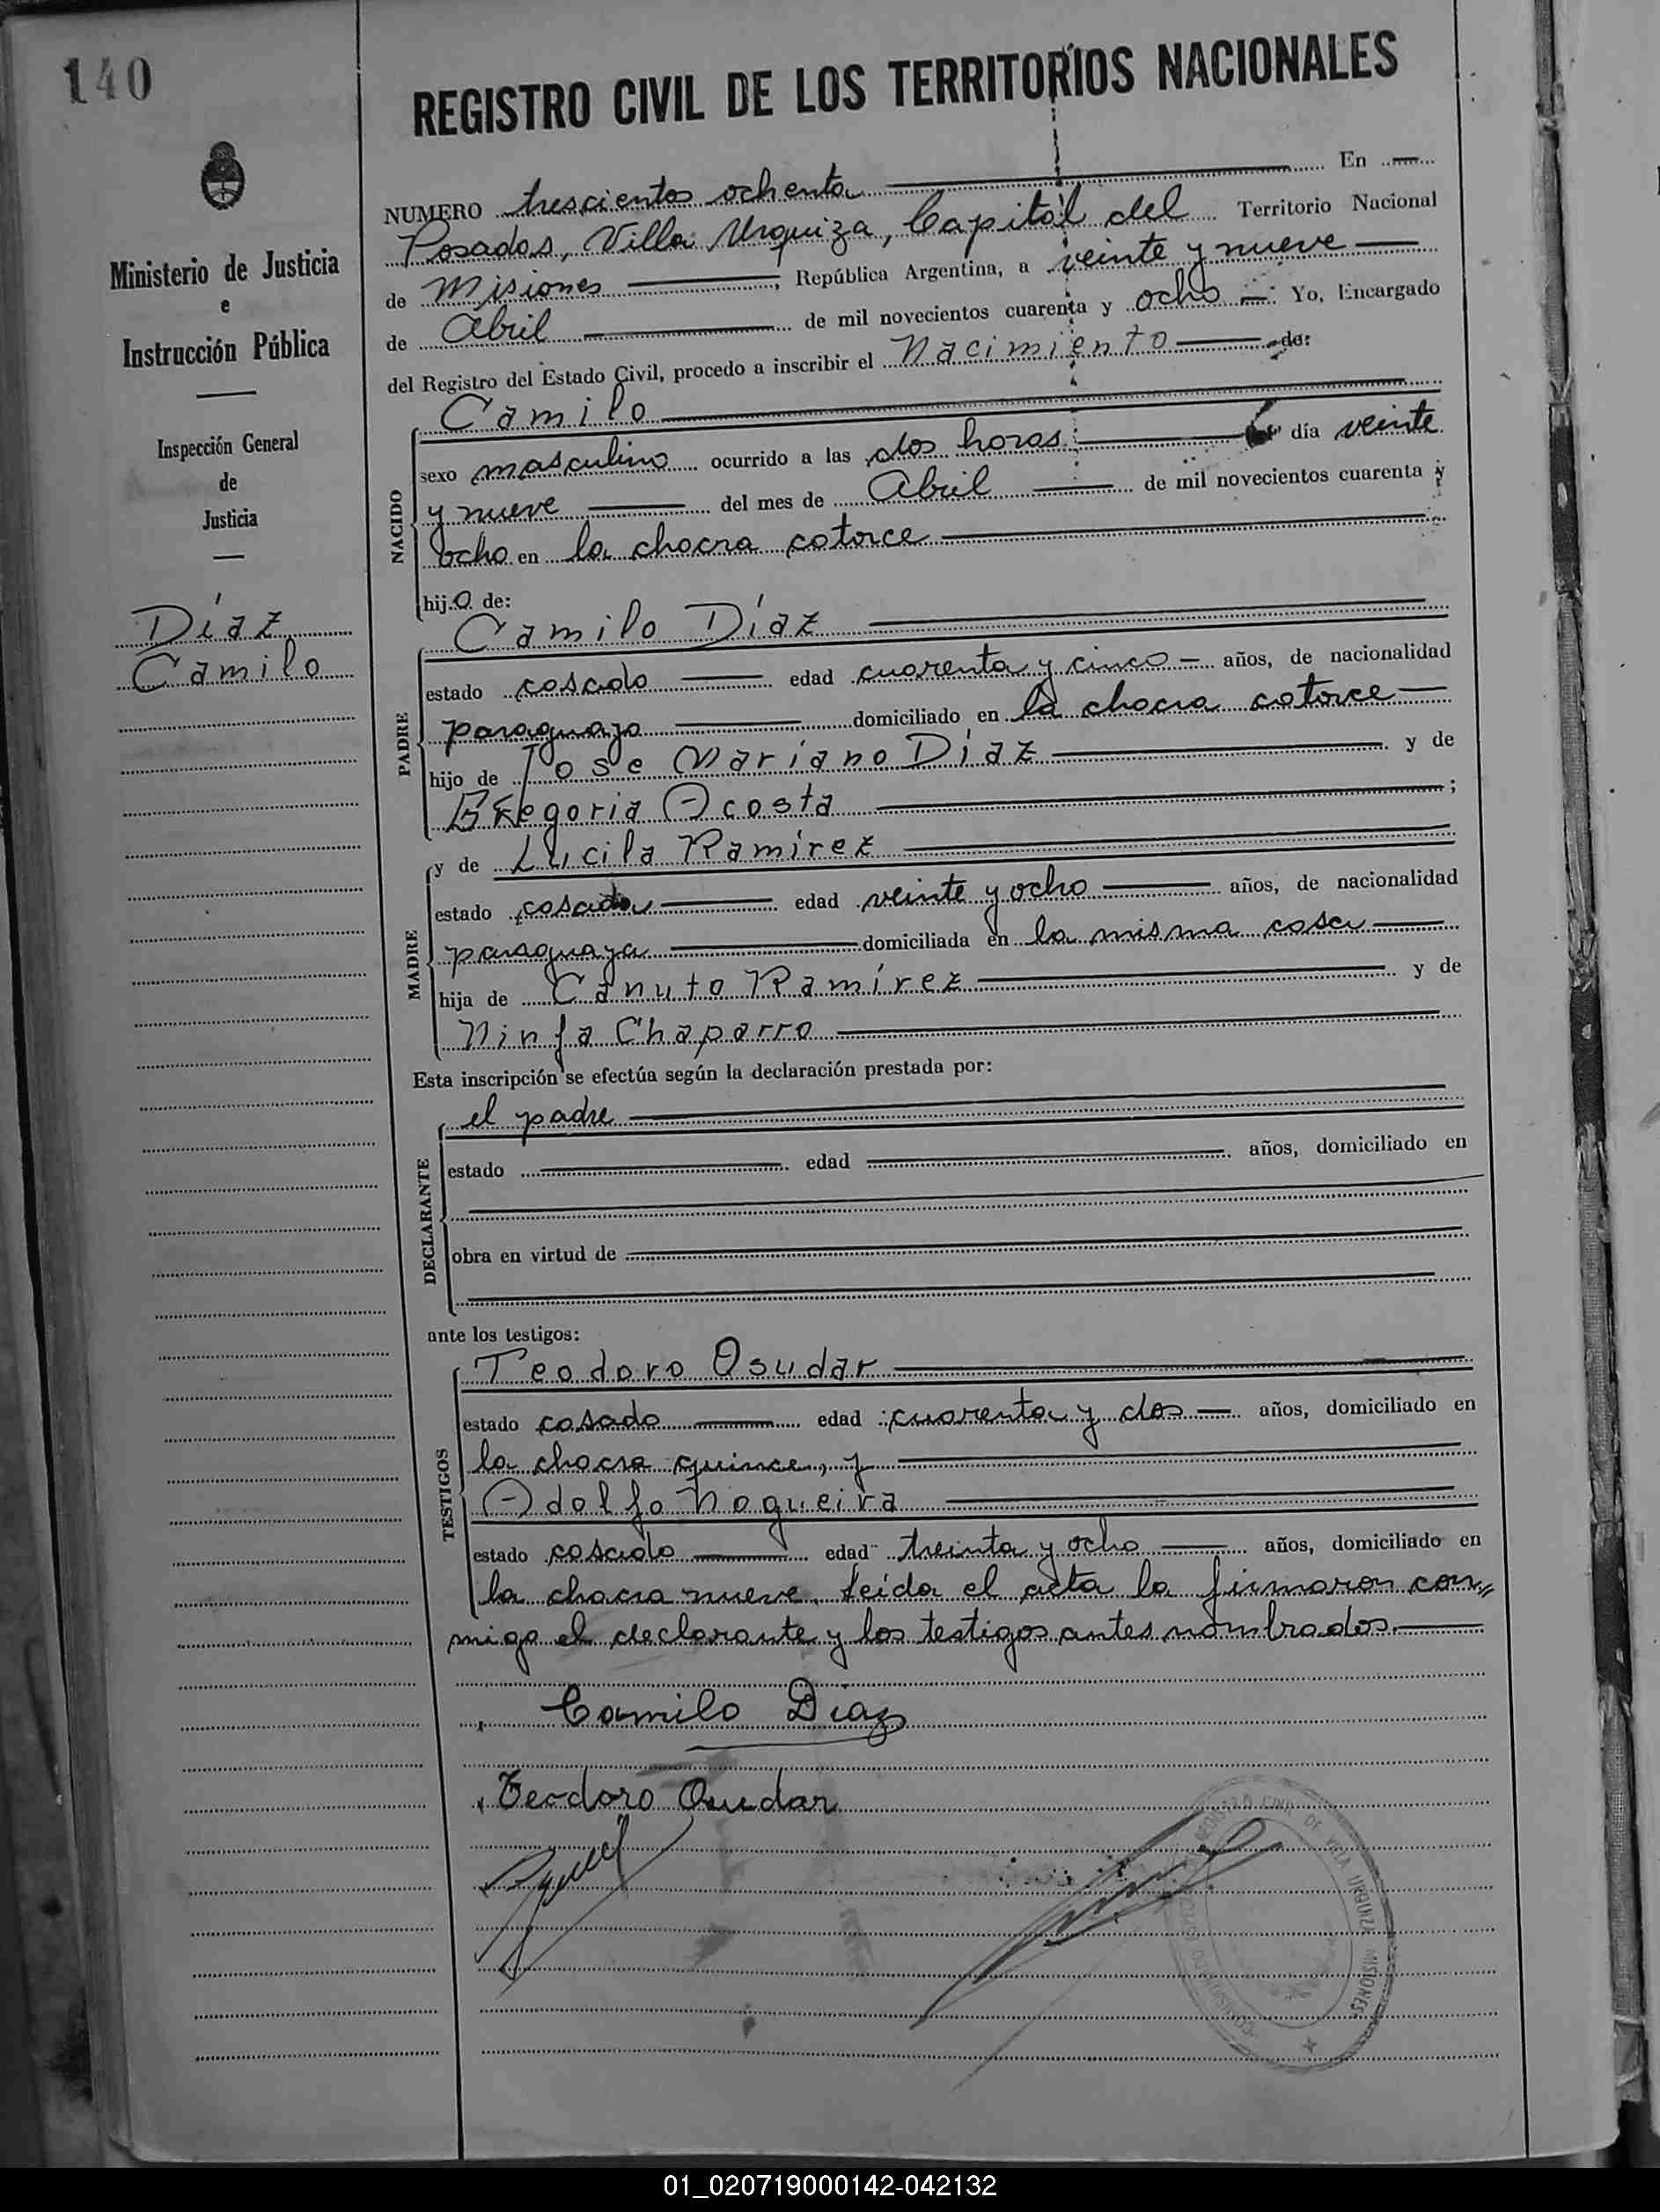 140
REGISTRO CIVIL DE LOS TERRITORIOS NACIONALES
Ministerio de Justicia
e
Instrucción Pública
Inspección General
de
Justicia
Díaz
Camilo
NUMERO trescientos ochenta En
Posadas, Villa Urquiza, Capital del Territorio Nacional
de Misiones, República Argentina, a veinte y nueve
de Abril de mil novecientos cuarenta y ocho Yo, Encargado
del Registro del Estado Civil, procedo a inscribir el Nacimiento de:
NACIDO
Camilo
sexo masculino ocurrido a las dos horas día veinte
y nueve del mes de Abril de mil novecientos cuarenta y
ocho en la chacra catorce
hijo de:
PADRE
Camilo Díaz
estado casado edad cuarenta y cinco años, de nacionalidad
paraguayo domiciliado en la chacra catorce
hijo de Jose Mariano Díaz y de
Gregoria Acosta;
MADRE
y de Lucila Ramirez
estado casada edad veinte y ocho años, de nacionalidad
paraguaya domiciliada en la misma casa
hija de Canuto Ramírez y de
Ninfa Chaparro
Esta inscripción se efectúa según la declaración prestada por:
DECLARANTE
el padre
estado edad años, domiciliado en
obra en virtud de
ante los testigos:
TESTIGOS
Teodoro Osudar
estado casado edad cuarenta y dos años, domiciliado en
la chacra quince, y
Adolfo Nogueira
estado casado edad treinta y ocho años, domiciliado en
la chacra nueve. Leída el acta la firmaron con
migo el declarante y los testigos antes nombrados.
Camilo Diaz
Teodoro Osudar
URQUIZA MISIONES
01_020719000142-042132